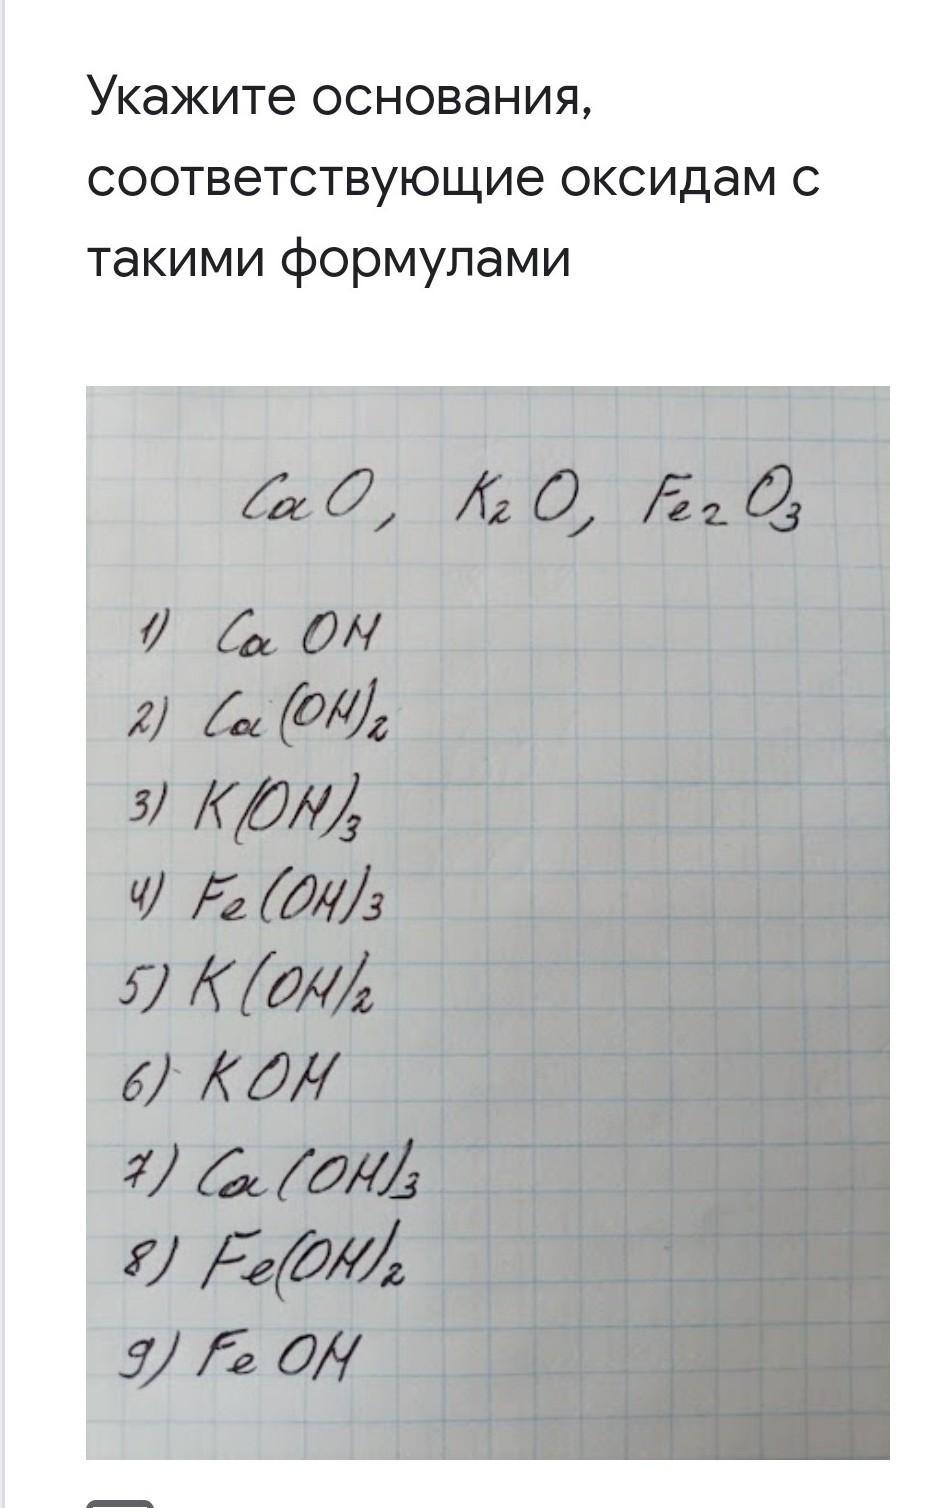 Укажите основания,
соответствующие оксидам с
такими формулами
CaO, K₂O, Fe₂O₃
1) CaOH
2) Ca(OH)₂
3) K(OH)₃
4) Fe(OH)₃
5) K(OH)₂
6) KOH
7) Ca(OH)₃
8) Fe(OH)₂
9) FeOH